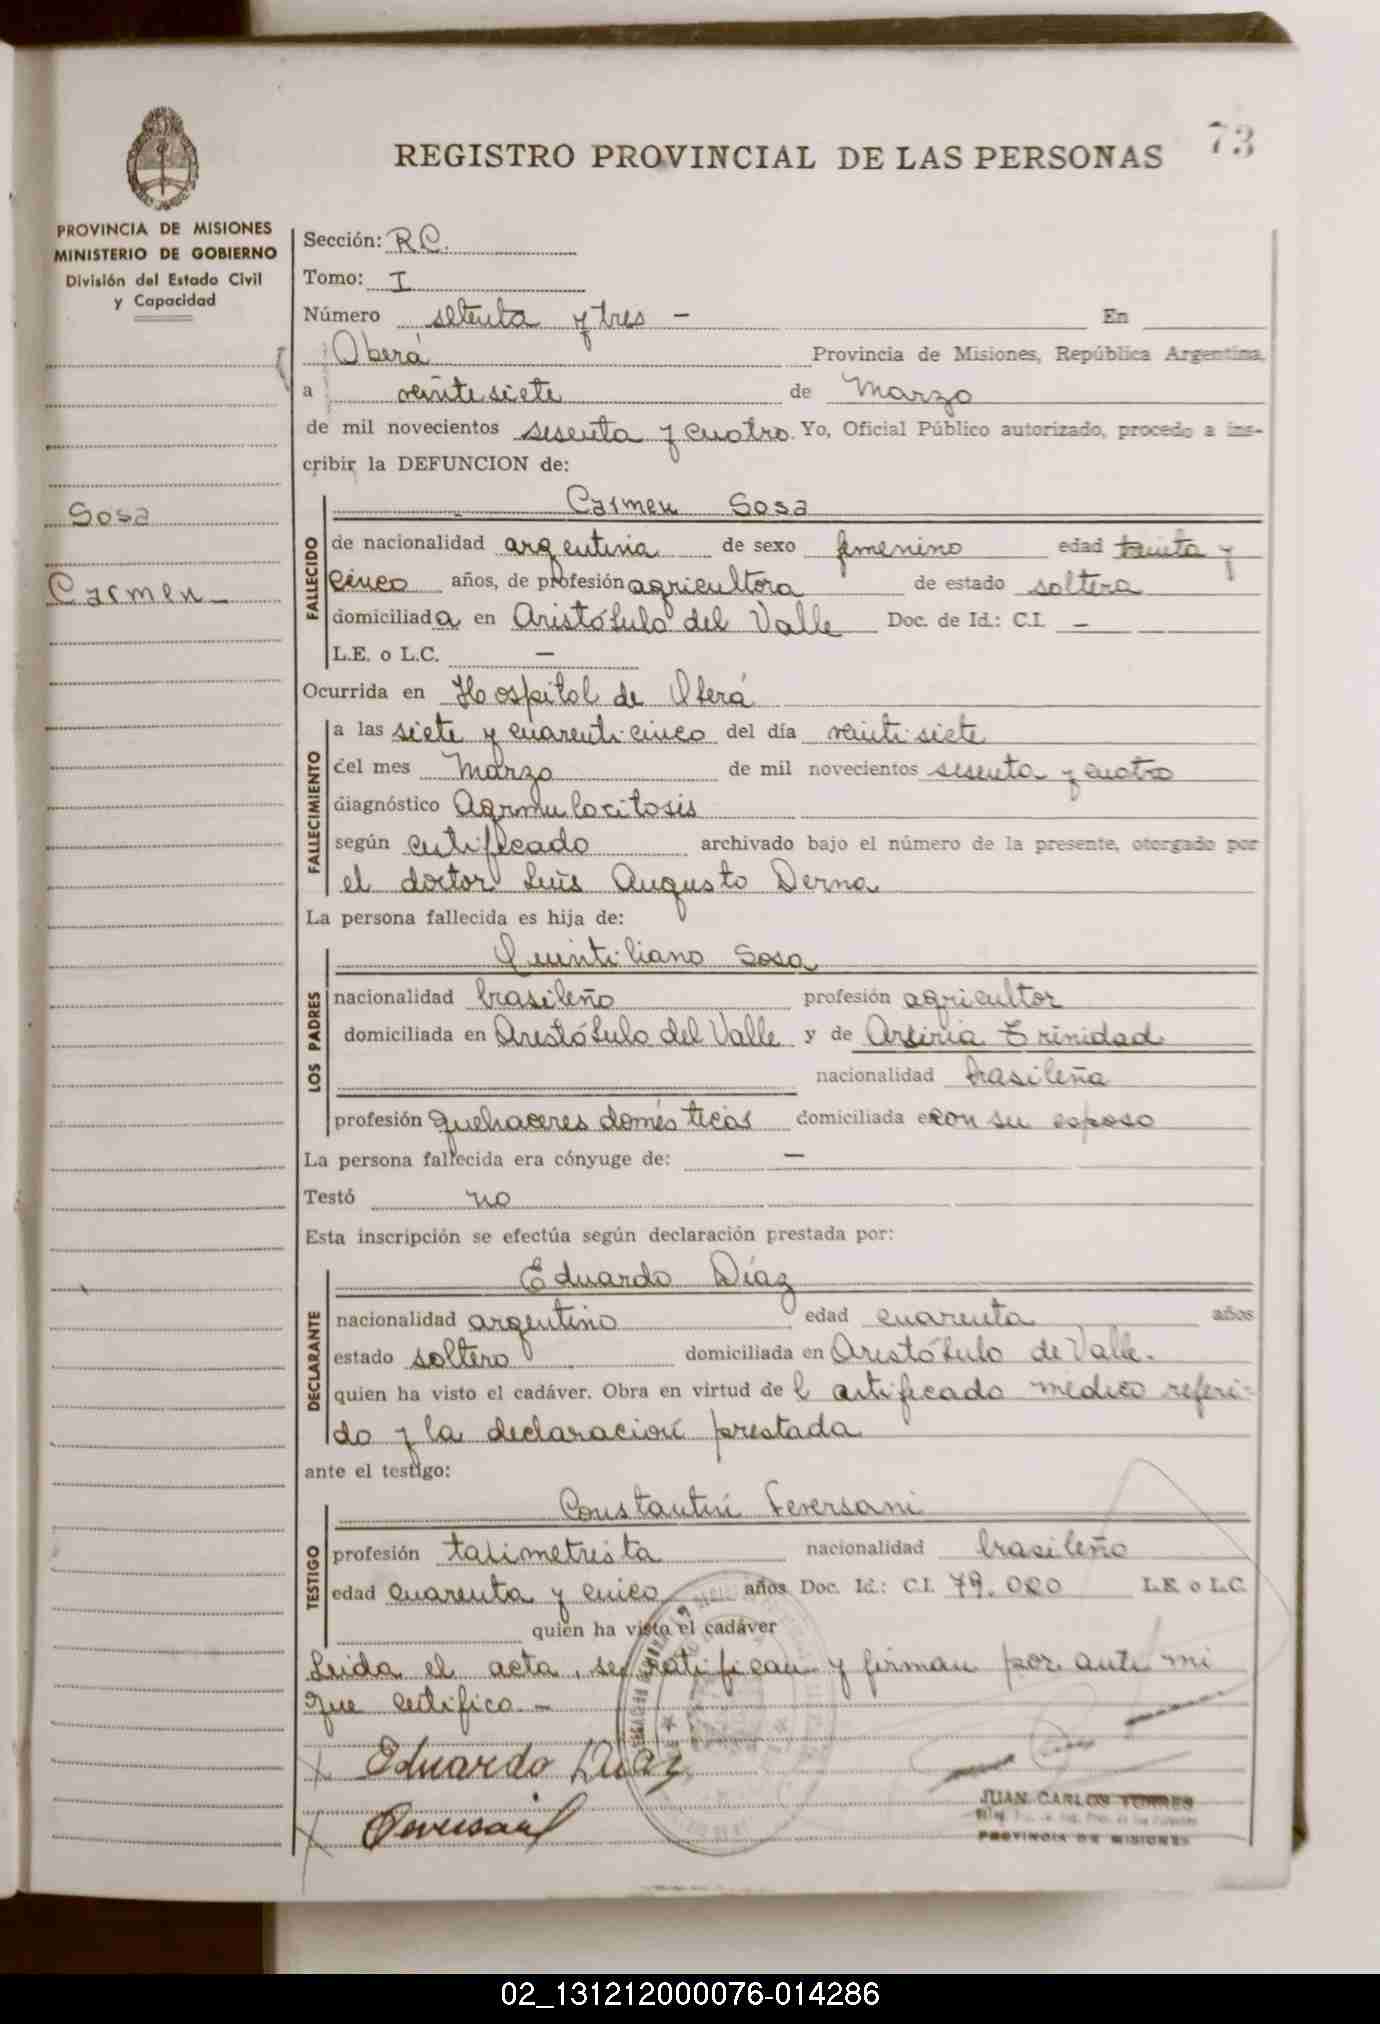 73
REGISTRO PROVINCIAL DE LAS PERSONAS
PROVINCIA DE MISIONES
MINISTERIO DE GOBIERNO
División del Estado Civil
y Capacidad
Sosa
Carmen
Sección: R.C.
Tomo: I
Número setenta y tres - En
Oberá Provincia de Misiones, República Argentina,
a veintisiete de Marzo
de mil novecientos sesenta y cuatro. Yo, Oficial Público autorizado, procedo a ins-
cribir la DEFUNCION de:
FALLECIDO
Carmen Sosa
de nacionalidad argentina de sexo femenino edad treinta y
cinco años, de profesión agricultora de estado soltera
domiciliada en Aristóbulo del Valle Doc. de Id.: C.I. -
L.E. o L.C. -
Ocurrida en Hospital de Oberá
FALLECIMIENTO
a las siete y cuarenticinco del día veintisiete
del mes Marzo de mil novecientos sesenta y cuatro
diagnóstico
según certificado archivado bajo el número de la presente, otorgado por
el doctor Luis Augusto Derna
La persona fallecida es hija de:
LOS PADRES
Quintiliano Sosa
nacionalidad brasileño profesión agricultor
domiciliada en Aristóbulo del Valle y de Trinidad
nacionalidad brasileña
profesión quehaceres domésticos domiciliada con su esposo
La persona fallecida era cónyuge de: -
Testó no
Esta inscripción se efectúa según declaración prestada por:
DECLARANTE
Eduardo Díaz
nacionalidad argentino edad cuarenta años
estado soltero domiciliada en Aristóbulo de Valle.
quien ha visto el cadáver. Obra en virtud de l certificado médico referi-
do y la declaración prestada
ante el testigo:
TESTIGO
Constantin Feversani
profesión taximetrista nacionalidad brasileño
edad cuarenta y cinco años Doc. Id.: C.I. 79.020 L.E o L.C.
quien ha visto el cadáver
Leida el acta, se ratifican y firman por ante mi
que certifico. -
Eduardo Diaz
JUAN CARLOS TORRES
PROVINCIA DE MISIONES
02_131212000076-014286